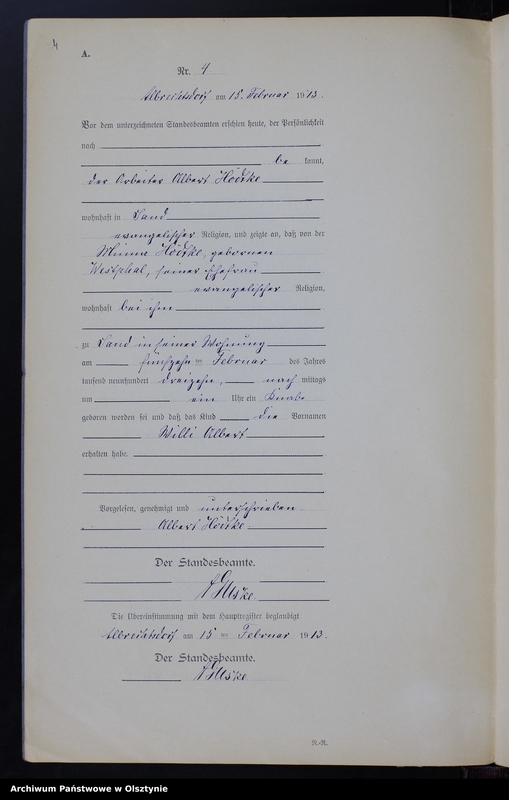 4
A.
Nr. 4
Albrechtsdorf am 15. Februar 1913.
Vor dem unterzeichneten Standesbeamten erschien heute, der Persönlichkeit
nach
be kannt,
der Arbeiter Albert Hödtke
wohnhaft in Sand
evangelischer Religion, und zeigte an, daß von der
Minna Hödtke, geborenen
Westphal, seiner Ehefrau
evangelischer Religion,
wohnhaft bei ihm
zu Sand in seiner Wohnung
am fünfzehnten Februar des Jahres
tausend neunhundert dreizehn, nach mittags
um ein Uhr ein Knabe
geboren worden sei und daß das Kind die Vornamen
Willi Albert
erhalten habe.
Vorgelesen, genehmigt und unterschrieben
Albert Hödtke
Der Standesbeamte.
Die Übereinstimmung mit dem Hauptregister beglaubigt
Albrechtsdorf am 15 ten Februar 1913.
Der Standesbeamte.
R.-R.
Archiwum Państwowe w Olsztynie